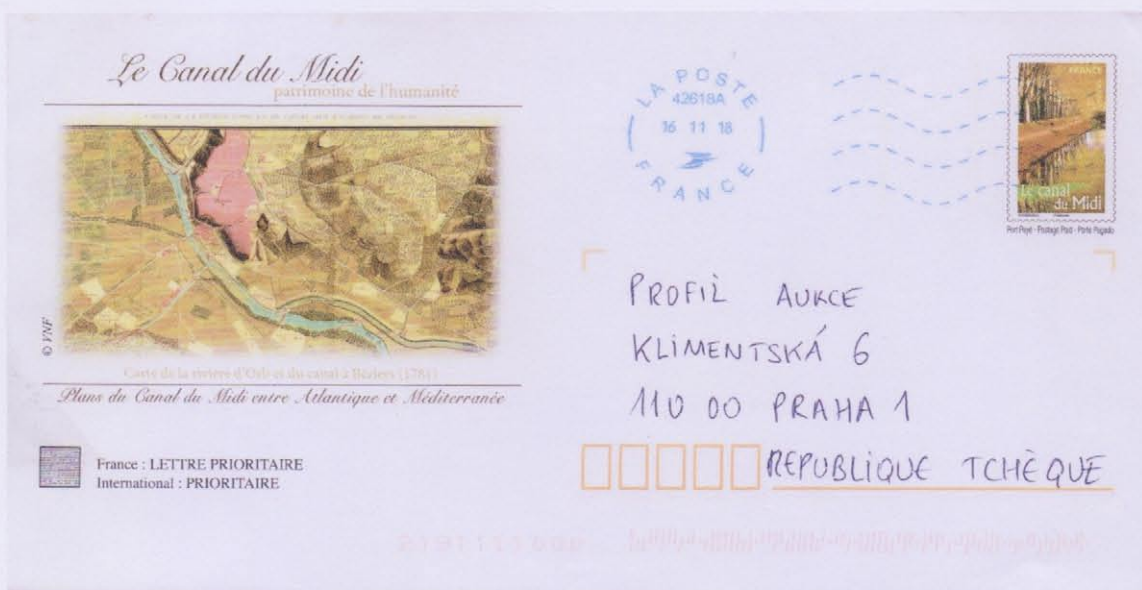 Le Canal du Midi
patrimoine de l'humanité
© VNF
Carte de la rivière d'Orb et du canal à Béziers (1781)
Plans du Canal du Midi entre Atlantique et Méditerranée
France : LETTRE PRIORITAIRE
International : PRIORITAIRE
LA POSTE
42618A
16 11 18
FRANCE
FRANCE
Le canal
du Midi
Port Payé - Postage Paid - Porte Pagado
PROFIL AUKCE
KLIMENTSKÁ 6
110 00 PRAHA 1
REPUBLIQUE TCHÈQUE